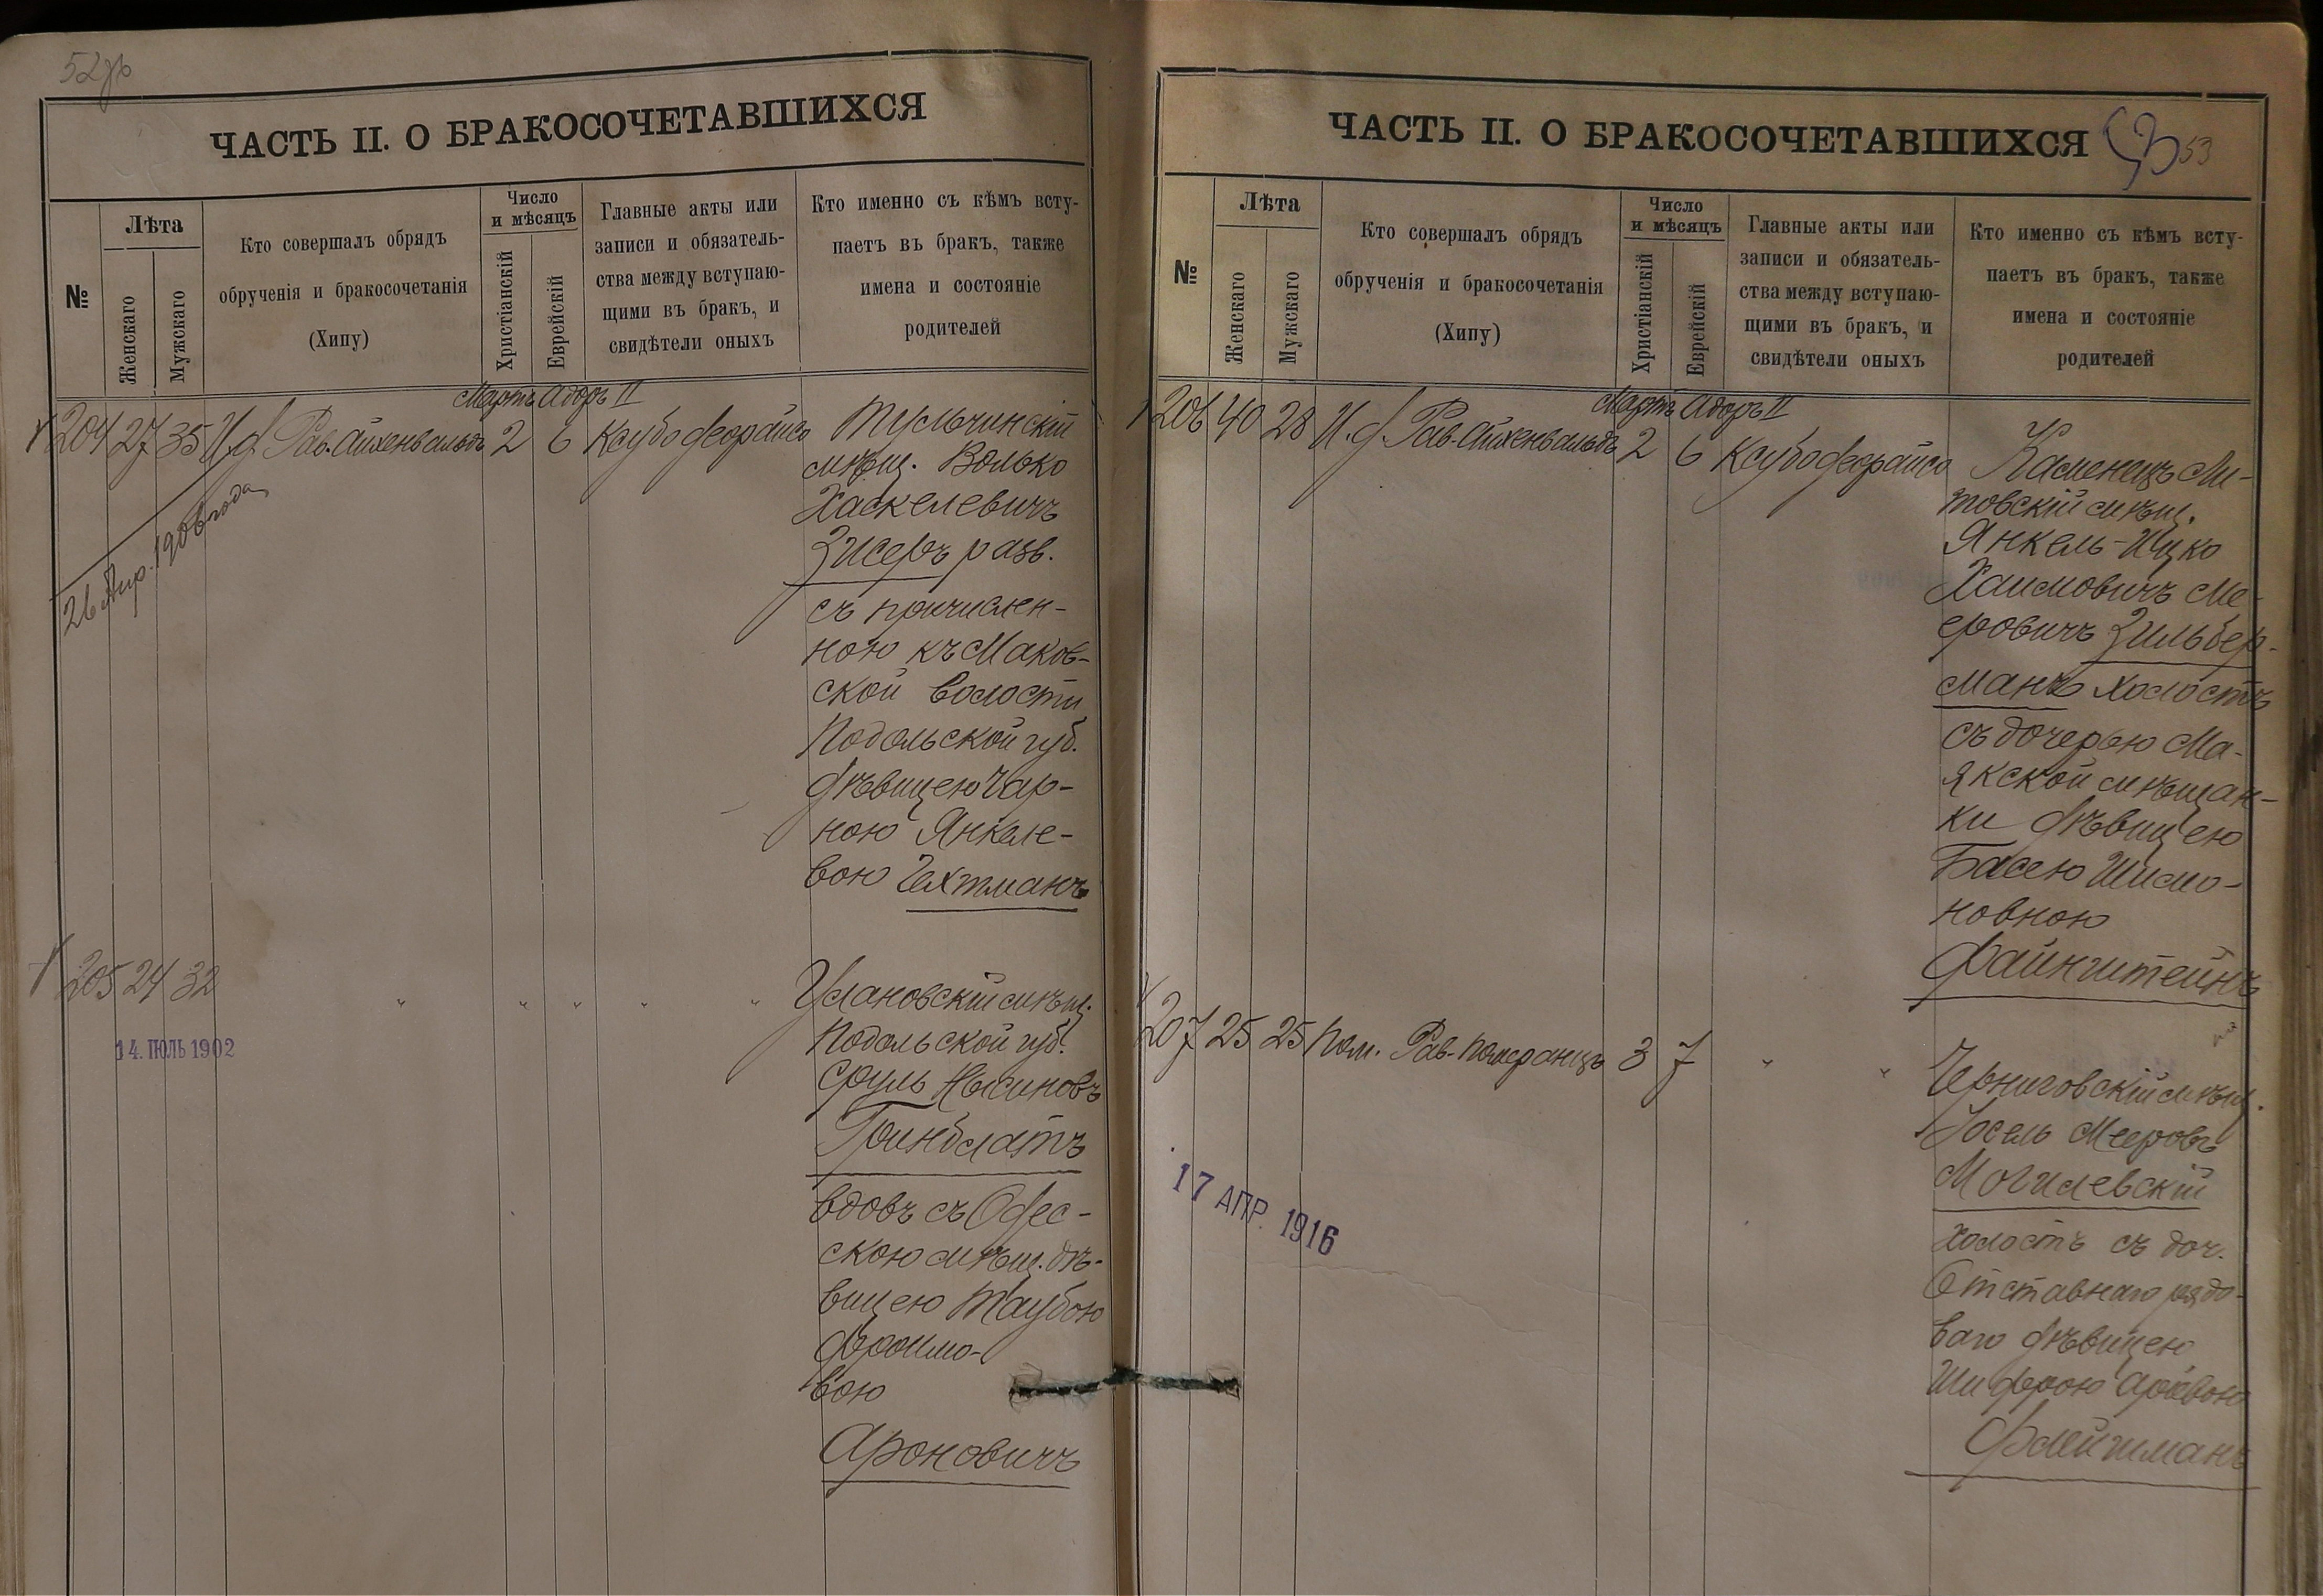 52
ЧАСТЬ II. О БРАКОСОЧЕТАВШИХСЯ
№
Лѣта
Женскаго
Мужскаго
Кто совершалъ обрядъ
обрученія и бракосочетанія
(Хипу)
Число
и мѣсяцъ
Христіанскій
Еврейскій
Главные акты или
записи и обязатель-
ства между вступаю-
щими въ бракъ, и
свидѣтели оныхъ
Кто именно съ кѣмъ всту-
паетъ въ бракъ, также
имена и состояніе
родителей
Мартъ Адоръ II
204 27 35 И.д. Рав. Айхенвальдъ 2 6 Ксубо деорайсо
Тульчинскій
мѣщ. Волько
Хаскелевичъ
Зисеръ разв.
съ причислен-
ною къ Маков-
ской волости
Подольской губ.
дѣвицею Чар-
ною Янкеле-
вою Гехтманъ
26 Апр. 1906 года
205 24 32 " " " " "
14. ІЮЛЬ 1902
Улановскій мѣщ.
Подольской губ.
Сруль Нысиновъ
Гринблатъ
вдовъ съ Одес-
скою мѣщ. дѣ-
вицею Таубою
Фроимо-
вою
Ароновичъ
ЧАСТЬ II. О БРАКОСОЧЕТАВШИХСЯ
53 53
№
Лѣта
Женскаго
Мужскаго
Кто совершалъ обрядъ
обрученія и бракосочетанія
(Хипу)
Число
и мѣсяцъ
Христіанскій
Еврейскій
Главные акты или
записи и обязатель-
ства между вступаю-
щими въ бракъ, и
свидѣтели оныхъ
Кто именно съ кѣмъ всту-
паетъ въ бракъ, также
имена и состояніе
родителей
Мартъ Адоръ II
206 40 28 И.д. Рав. Айхенвальдъ 2 6 Ксубо деорайсо
Каменецъ Ли-
товскій мѣщ.
Янкель-Ицко
Хаимовичъ Ме-
еровичъ Зильбер-
манъ холостъ
съ дочерью Ма-
якской мѣщан-
ки дѣвицею
Басею Шимо-
новною
Файнштейнъ
207 25 25 Пом. Рав. Померанцъ 3 7 " "
17 АПР. 1916
Черниговскій мѣщ.
Іосель Мееровъ
Могилевскій
холостъ съ доч.
Отставнаго рядо-
ваго дѣвицею
Шифрою Арьевою
Флейшманъ